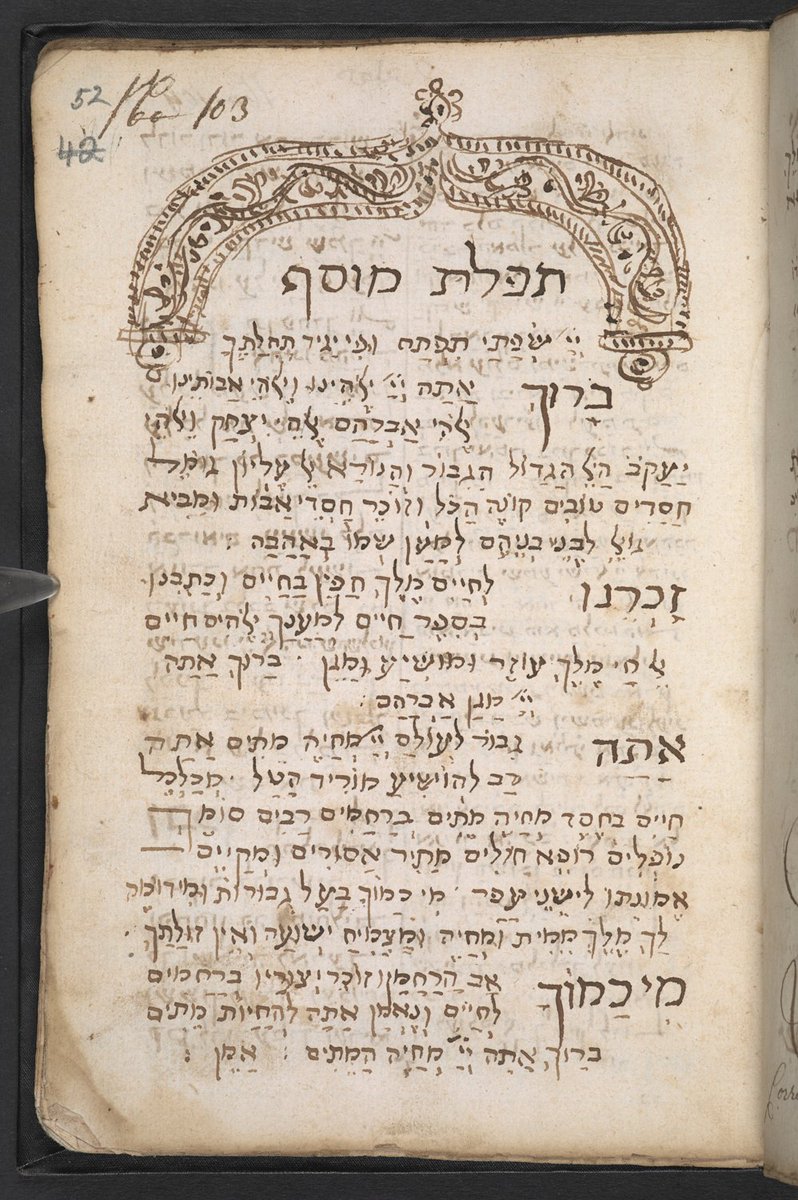 52
42
103
תפלת מוסף
יְיָ שְׂפָתַי תִּפְתַּח וּפִי יַגִּיד תְּהִלָּתֶךָ
בָּרוּךְ אַתָּה יְיָ אֱלֹהֵינוּ וֵאלֹהֵי אֲבוֹתֵינוּ
אֱלֹהֵי אַבְרָהָם אֱלֹהֵי יִצְחָק וֵאלֹהֵי
יַעֲקֹב הָאֵל הַגָּדוֹל הַגִּבּוֹר וְהַנּוֹרָא אֵל עֶלְיוֹן גּוֹמֵל
חֲסָדִים טוֹבִים קוֹנֵה הַכֹּל וְזוֹכֵר חַסְדֵי אָבוֹת וּמֵבִיא
גוֹאֵל לִבְנֵי בְנֵיהֶם לְמַעַן שְׁמוֹ בְּאַהֲבָה :
זָכְרֵנוּ לְחַיִּים מֶלֶךְ חָפֵץ בַּחַיִּים וְכָתְבֵנוּ
בְּסֵפֶר חַיִּים לְמַעֲנָךְ אֱלֹהִים חַיִּים
אֵל חַי מֶלֶךְ עוֹזֵר וּמוֹשִׁיעַ וּמָגֵן · בָּרוּךְ אַתָּה
יְיָ מָגֵן אַבְרָהָם :
אַתָּה גִּבּוֹר לְעוֹלָם יְיָ מְחַיֵּה מֵתִים אַתָּה
רַב לְהוֹשִׁיעַ מוֹרִיד הַטַּל · מְכַלְכֵּל
חַיִּים בְּחֶסֶד מְחַיֵּה מֵתִים בְּרַחֲמִים רַבִּים סוֹמֵךְ
נוֹפְלִים רוֹפֵא חוֹלִים מַתִּיר אֲסוּרִים וּמְקַיֵּים
אֱמוּנָתוֹ לִישֵׁנֵי עָפָר · מִי כָמוֹךָ בַּעַל גְּבוּרוֹת וּמִי דוֹמֶה
לָךְ מֶלֶךְ מֵמִית וּמְחַיֶּה וּמַצְמִיחַ יְשׁוּעָה וְאֵין זוּלָתֶךָ ·
מִי כָמוֹךָ אַב הָרַחֲמָן זוֹכֵר יְצוּרָיו בְּרַחֲמִים
לְחַיִּים וְנֶאֱמָן אַתָּה לְהַחֲיוֹת מֵתִים
בָּרוּךְ אַתָּה יְיָ מְחַיֵּה הַמֵּתִים : אָמֵן :